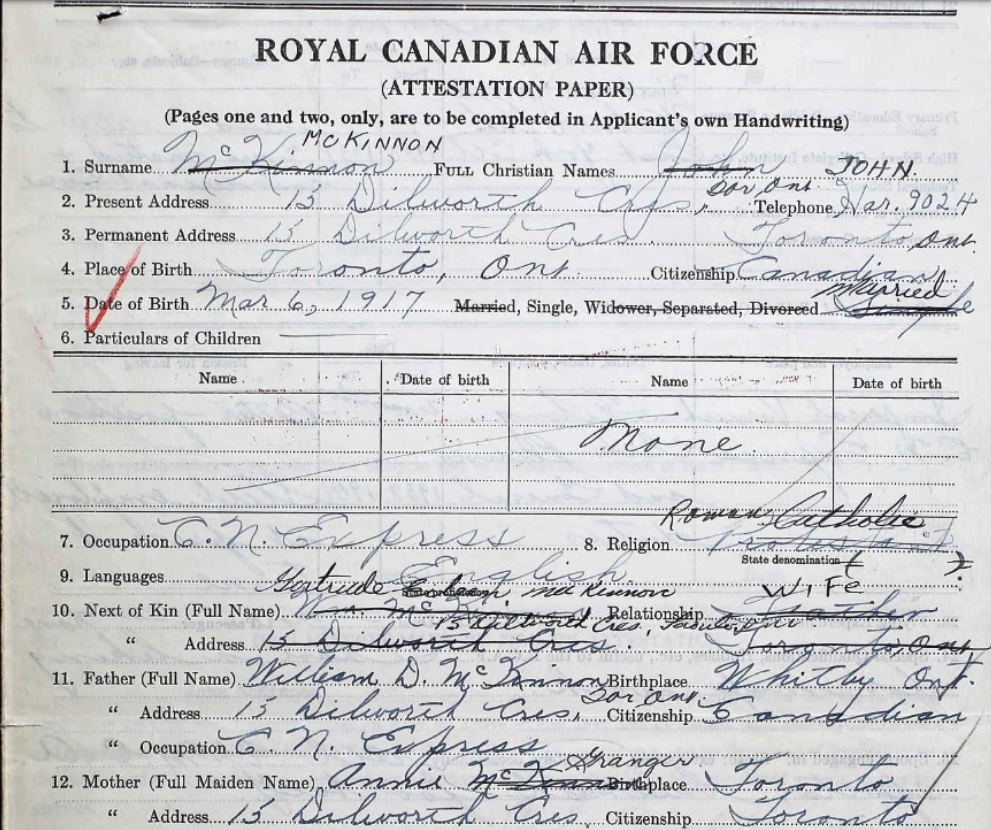 ROYAL CANADIAN AIR FORCE
(ATTESTATION PAPER)
(Pages one and two, only, are to be completed in Applicant's own Handwriting)
MCKINNON
1. Surname McKinnon FULL Christian Names John JOHN.
Tor, Ont
2. Present Address 15 Dilworth Cres, Telephone Har. 9024
3. Permanent Address 15 Dilworth Cres. Toronto, Ont.
4. Place of Birth Toronto, Ont Citizenship Canadian
Married
5. Date of Birth Mar 6, 1917 Married, Single, Widower, Separated, Divorced Single
6. Particulars of Children
Name Date of birth Name Date of birth
None
Roman Catholic
7. Occupation C. N. Express 8. Religion Protestant
State denomination
9. Languages English
Gertrude McKinnon WIFE
10. Next of Kin (Full Name) Wm. McKinnon Relationship Father
15 Dilworth Cres,
" Address 15 Dilworth Cres. Toronto, Ont
11. Father (Full Name) William D. McKinnon Birthplace Whitby Ont.
Tor Ont.
" Address 15 Dilworth Cres, Citizenship Canadian
" Occupation C. N. Express
Granger
12. Mother (Full Maiden Name) Annie McKinnon Birthplace Toronto
" Address 15 Dilworth Cres, Citizenship Toronto